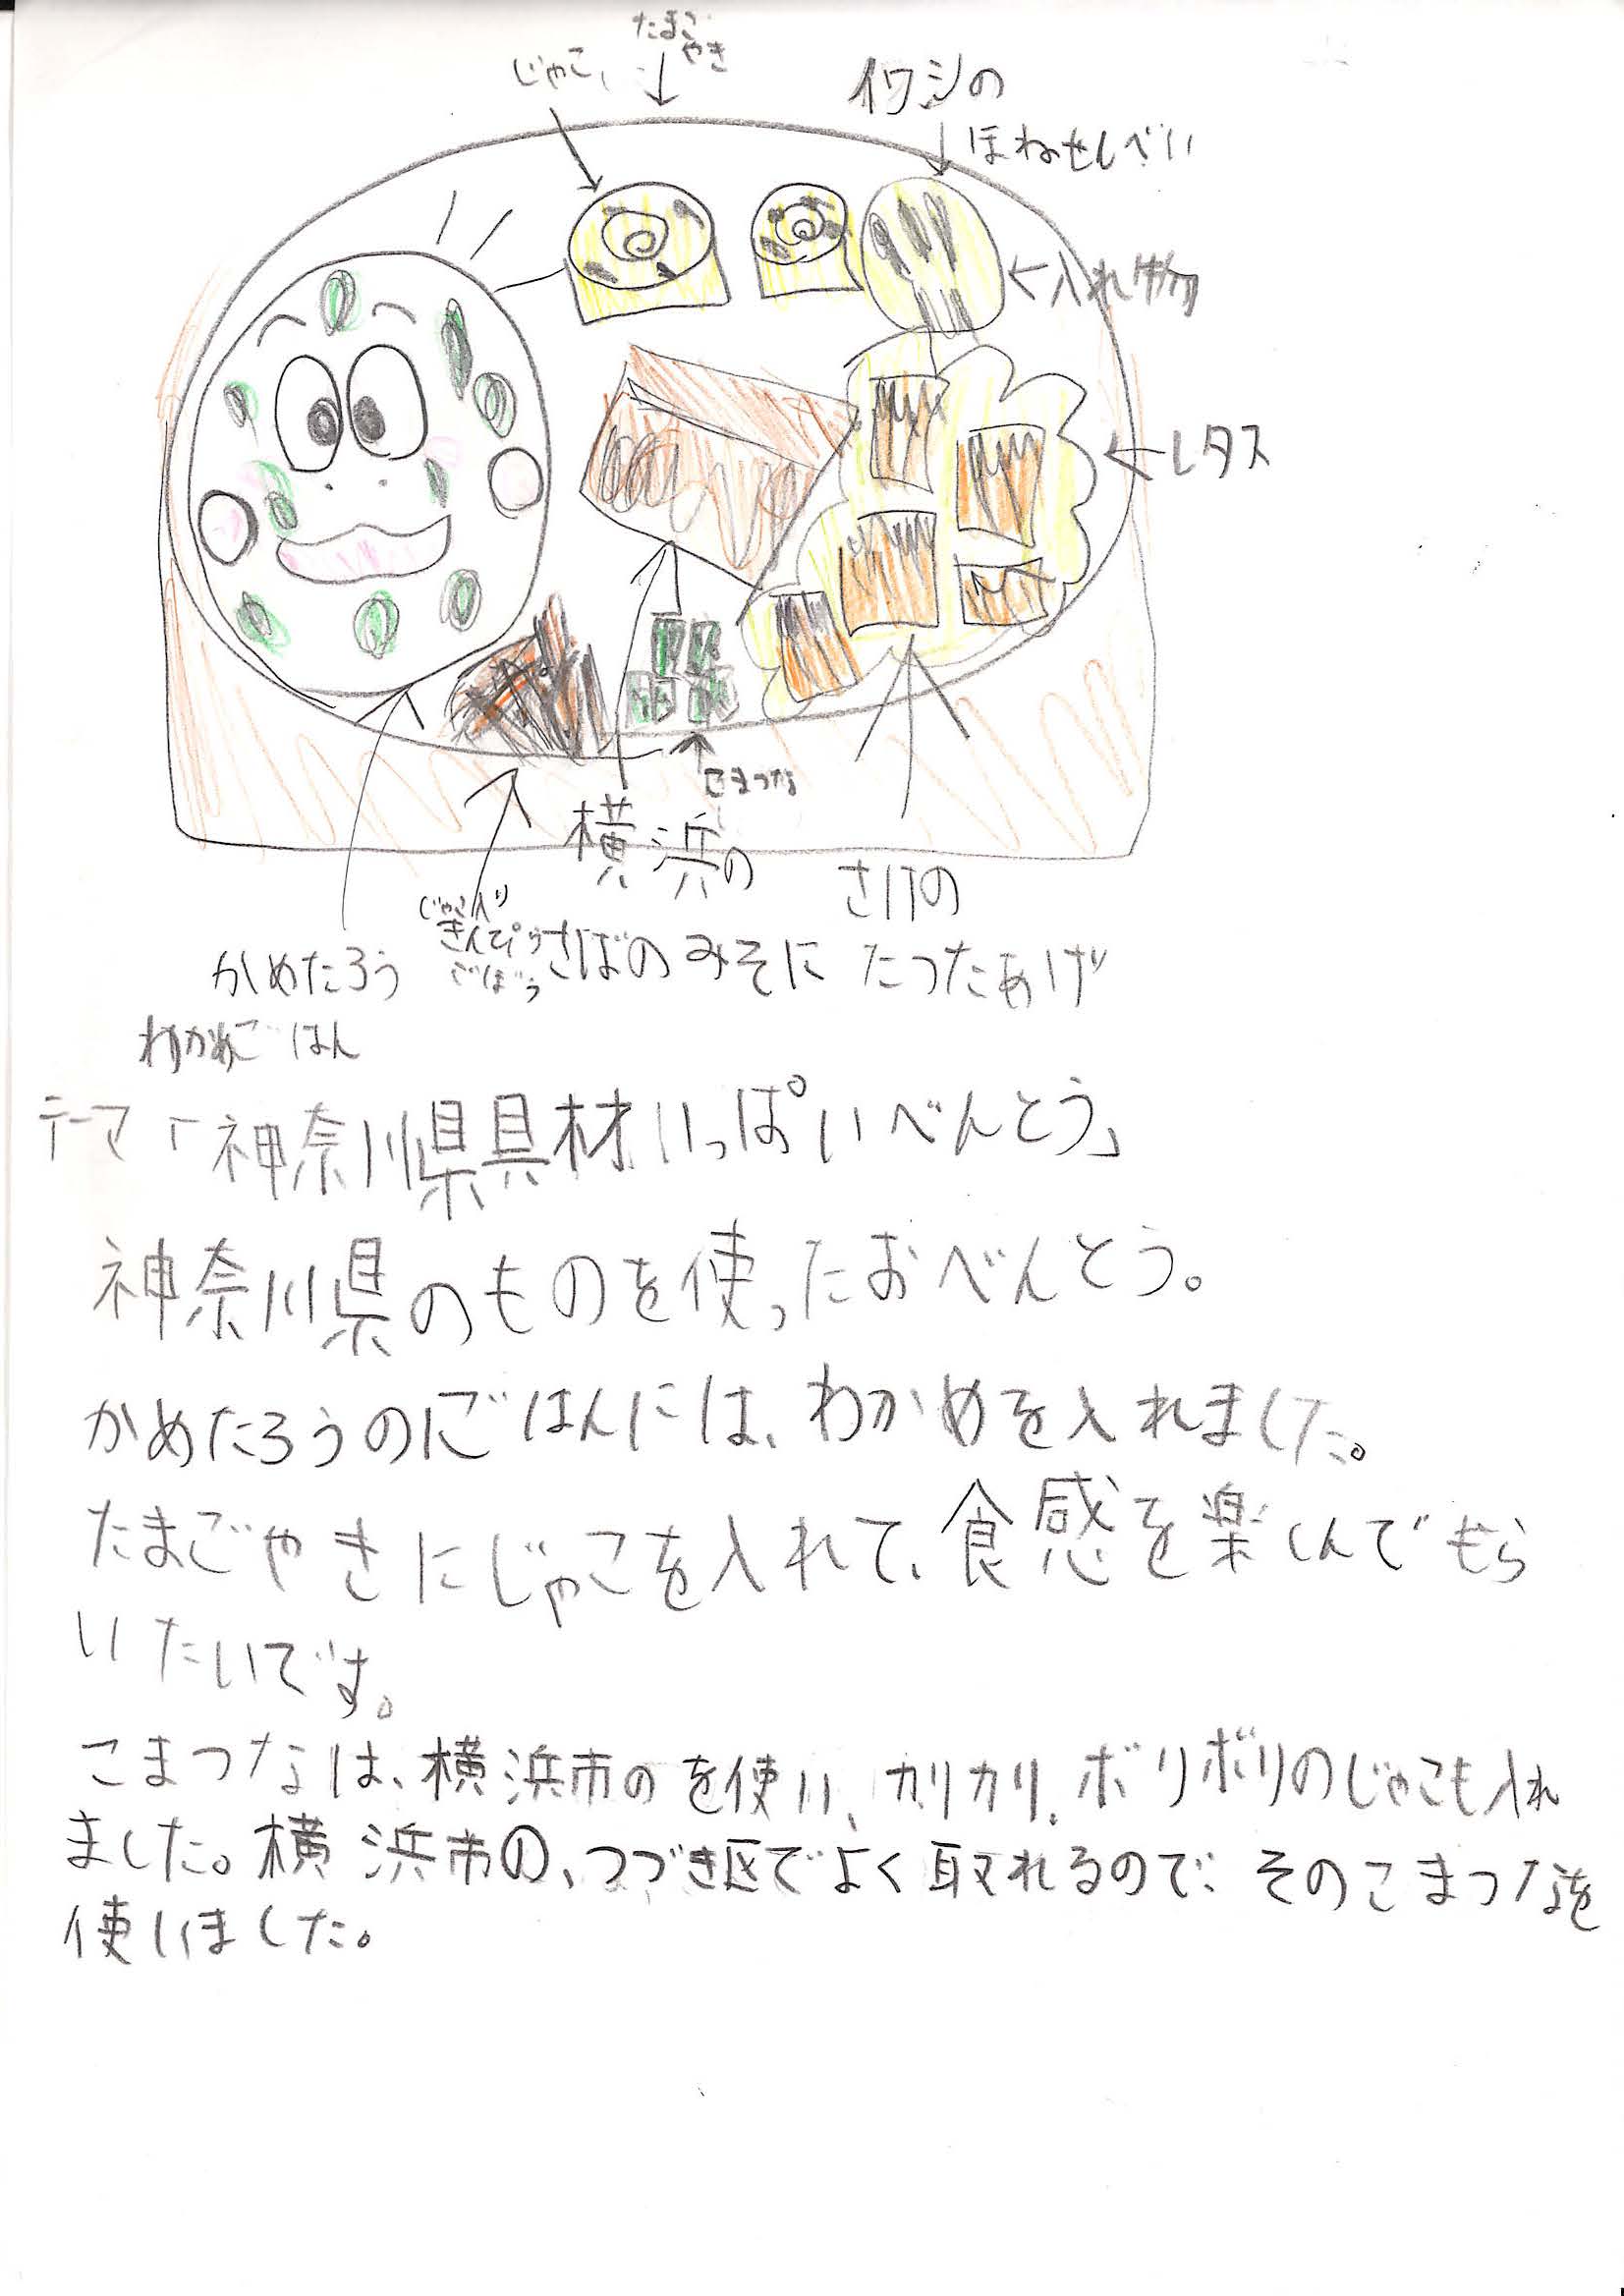 たまご
やき
じゃこ
イワシの
ほねせんべい
←入れ物
←レタス
こまつな
横浜の
さばのみそに
さけの
たったあげ
じゃこ入り
きんぴら
ごぼう
かめたろう
わかめごはん
テーマ「神奈川県具材いっぱいべんとう」
神奈川県のものを使ったおべんとう。
かめたろうのごはんには、わかめを入れました。
たまごやきにじゃこを入れて、食感を楽しんでもら
いたいです。
こまつなは、横浜市のを使い、カリカリ、ボリボリのじゃこも入れ
ました。横浜市の、つづき区でよく取れるので、そのこまつなを
使いました。